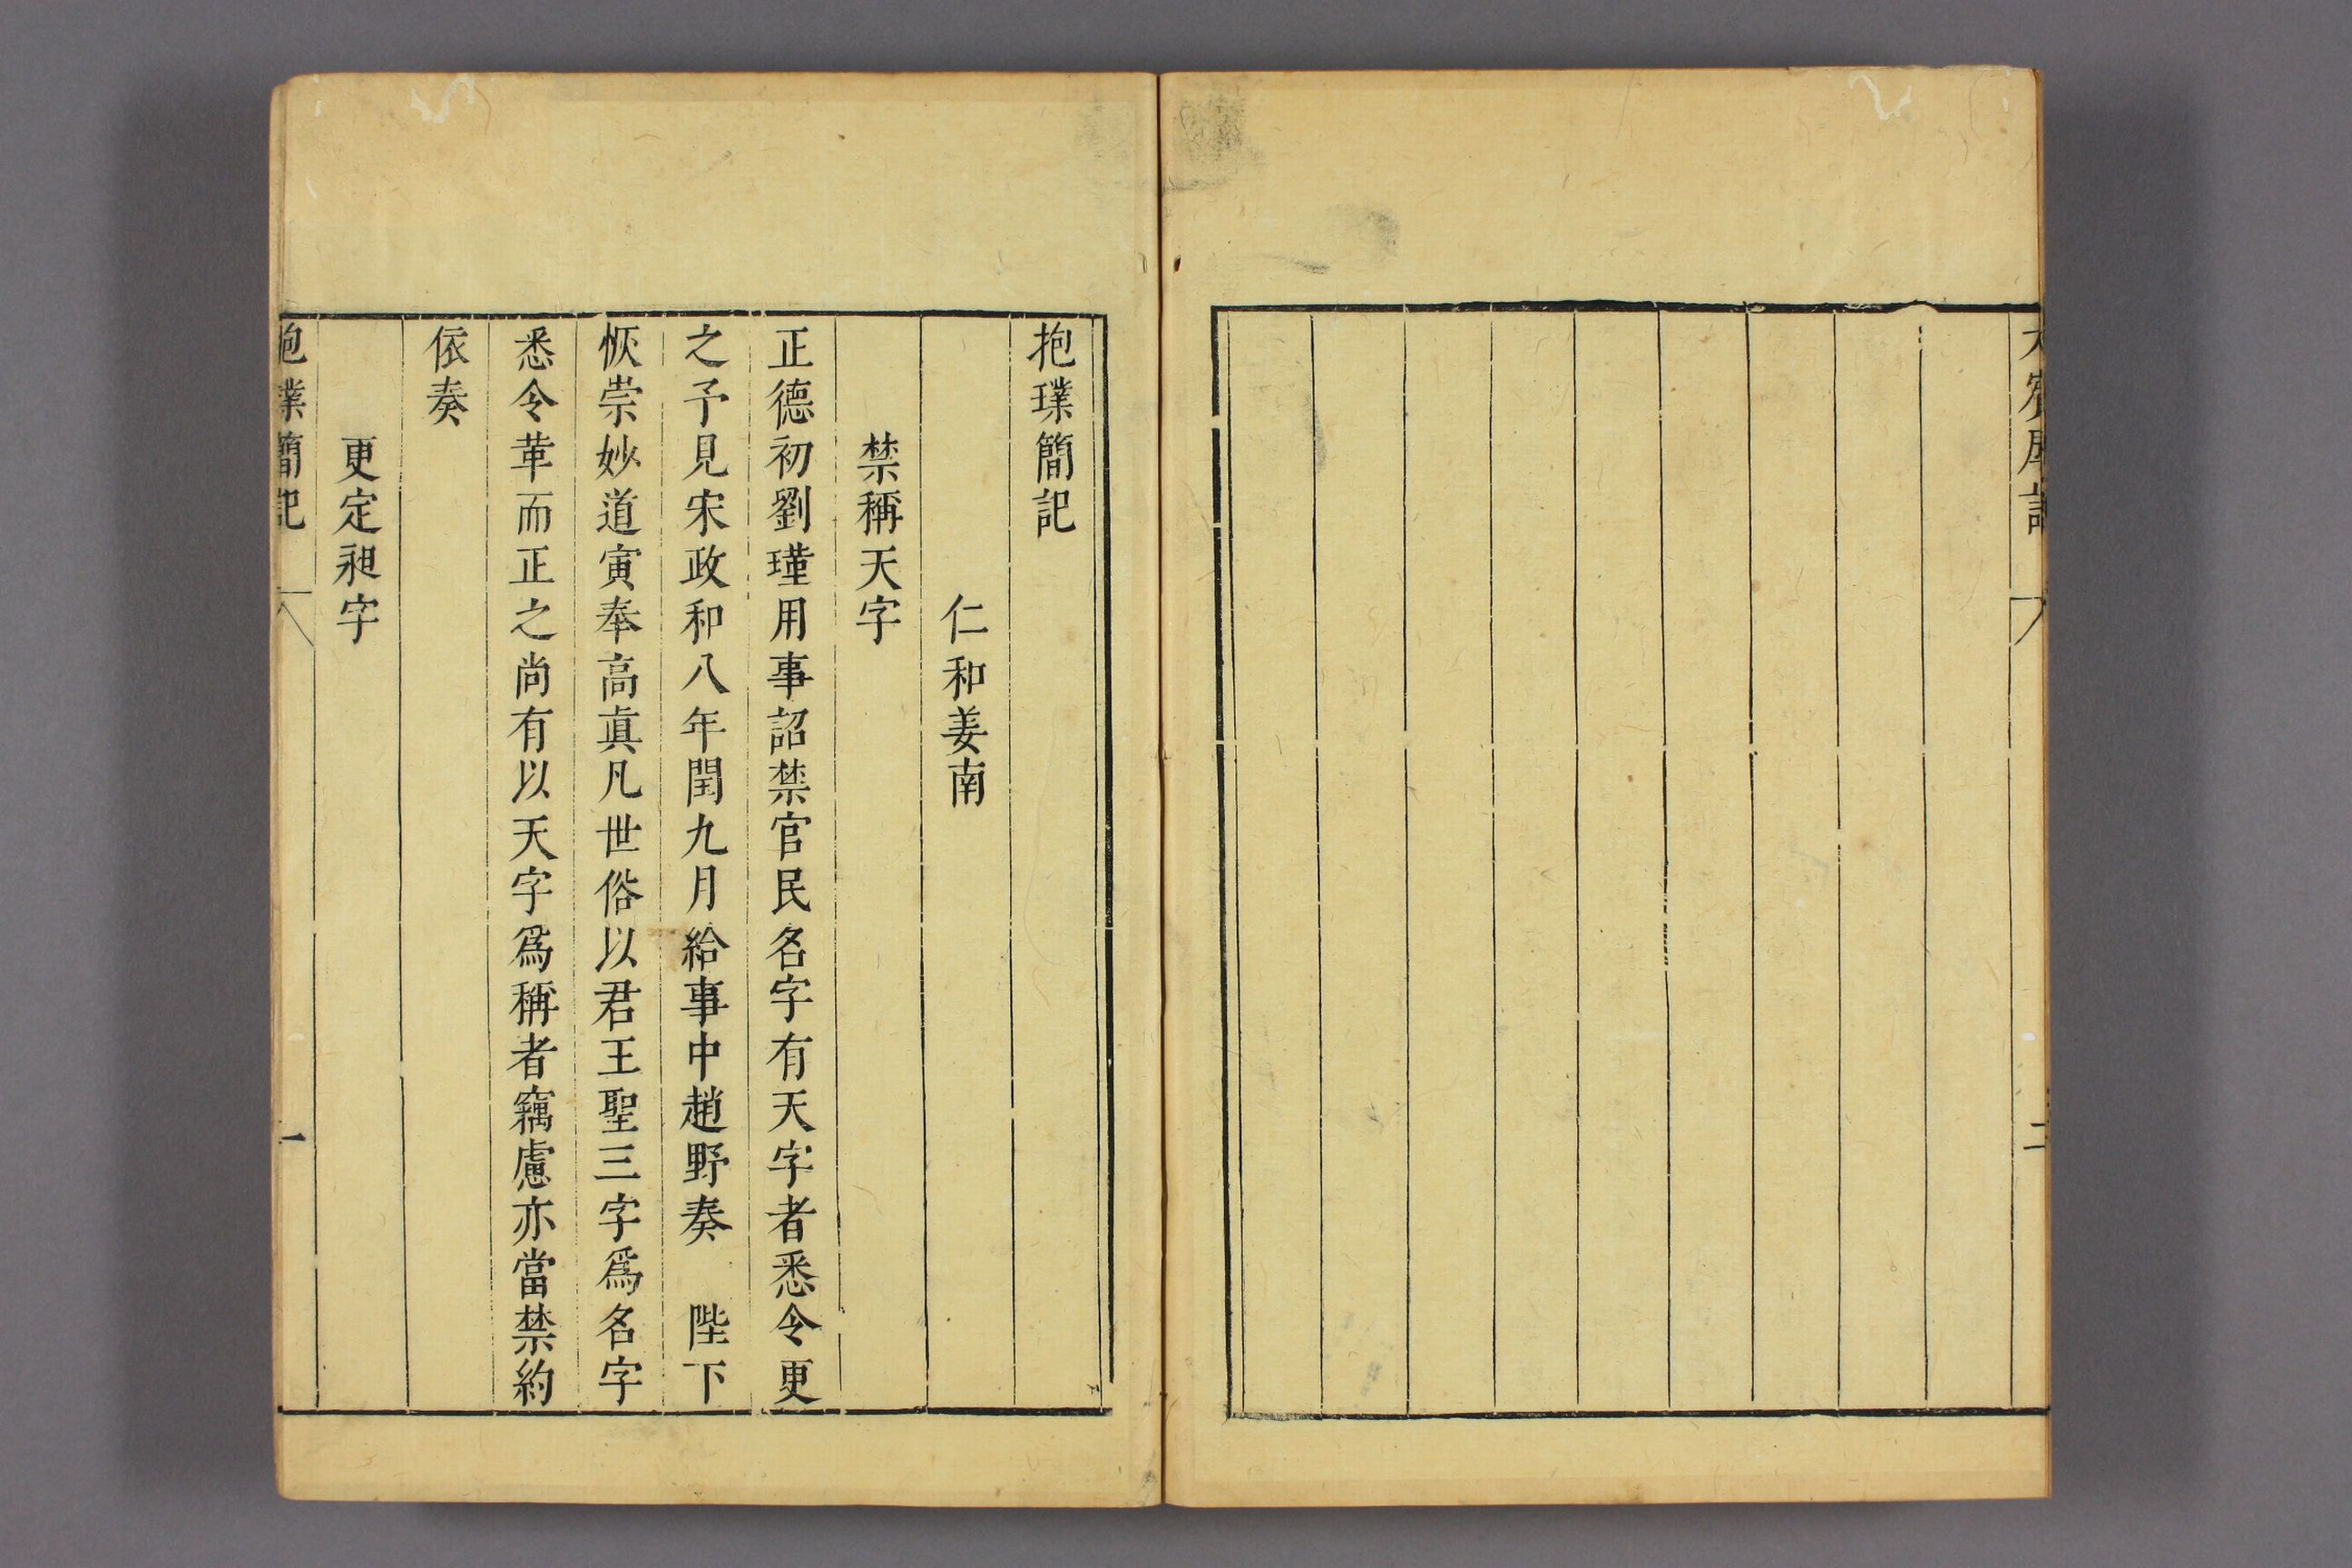 二
抱璞簡記
仁和姜南
禁稱天字
正德初劉瑾用事詔禁官民名字有天字者悉令更
之予見宋政和八年閏九月給事中趙野奏　陛下
恢崇妙道寅奉高眞凡世俗以君王聖三字爲名字
悉令革而正之尚有以天字爲稱者竊慮亦當禁約
依奏
更定昶字
抱璞簡記
一